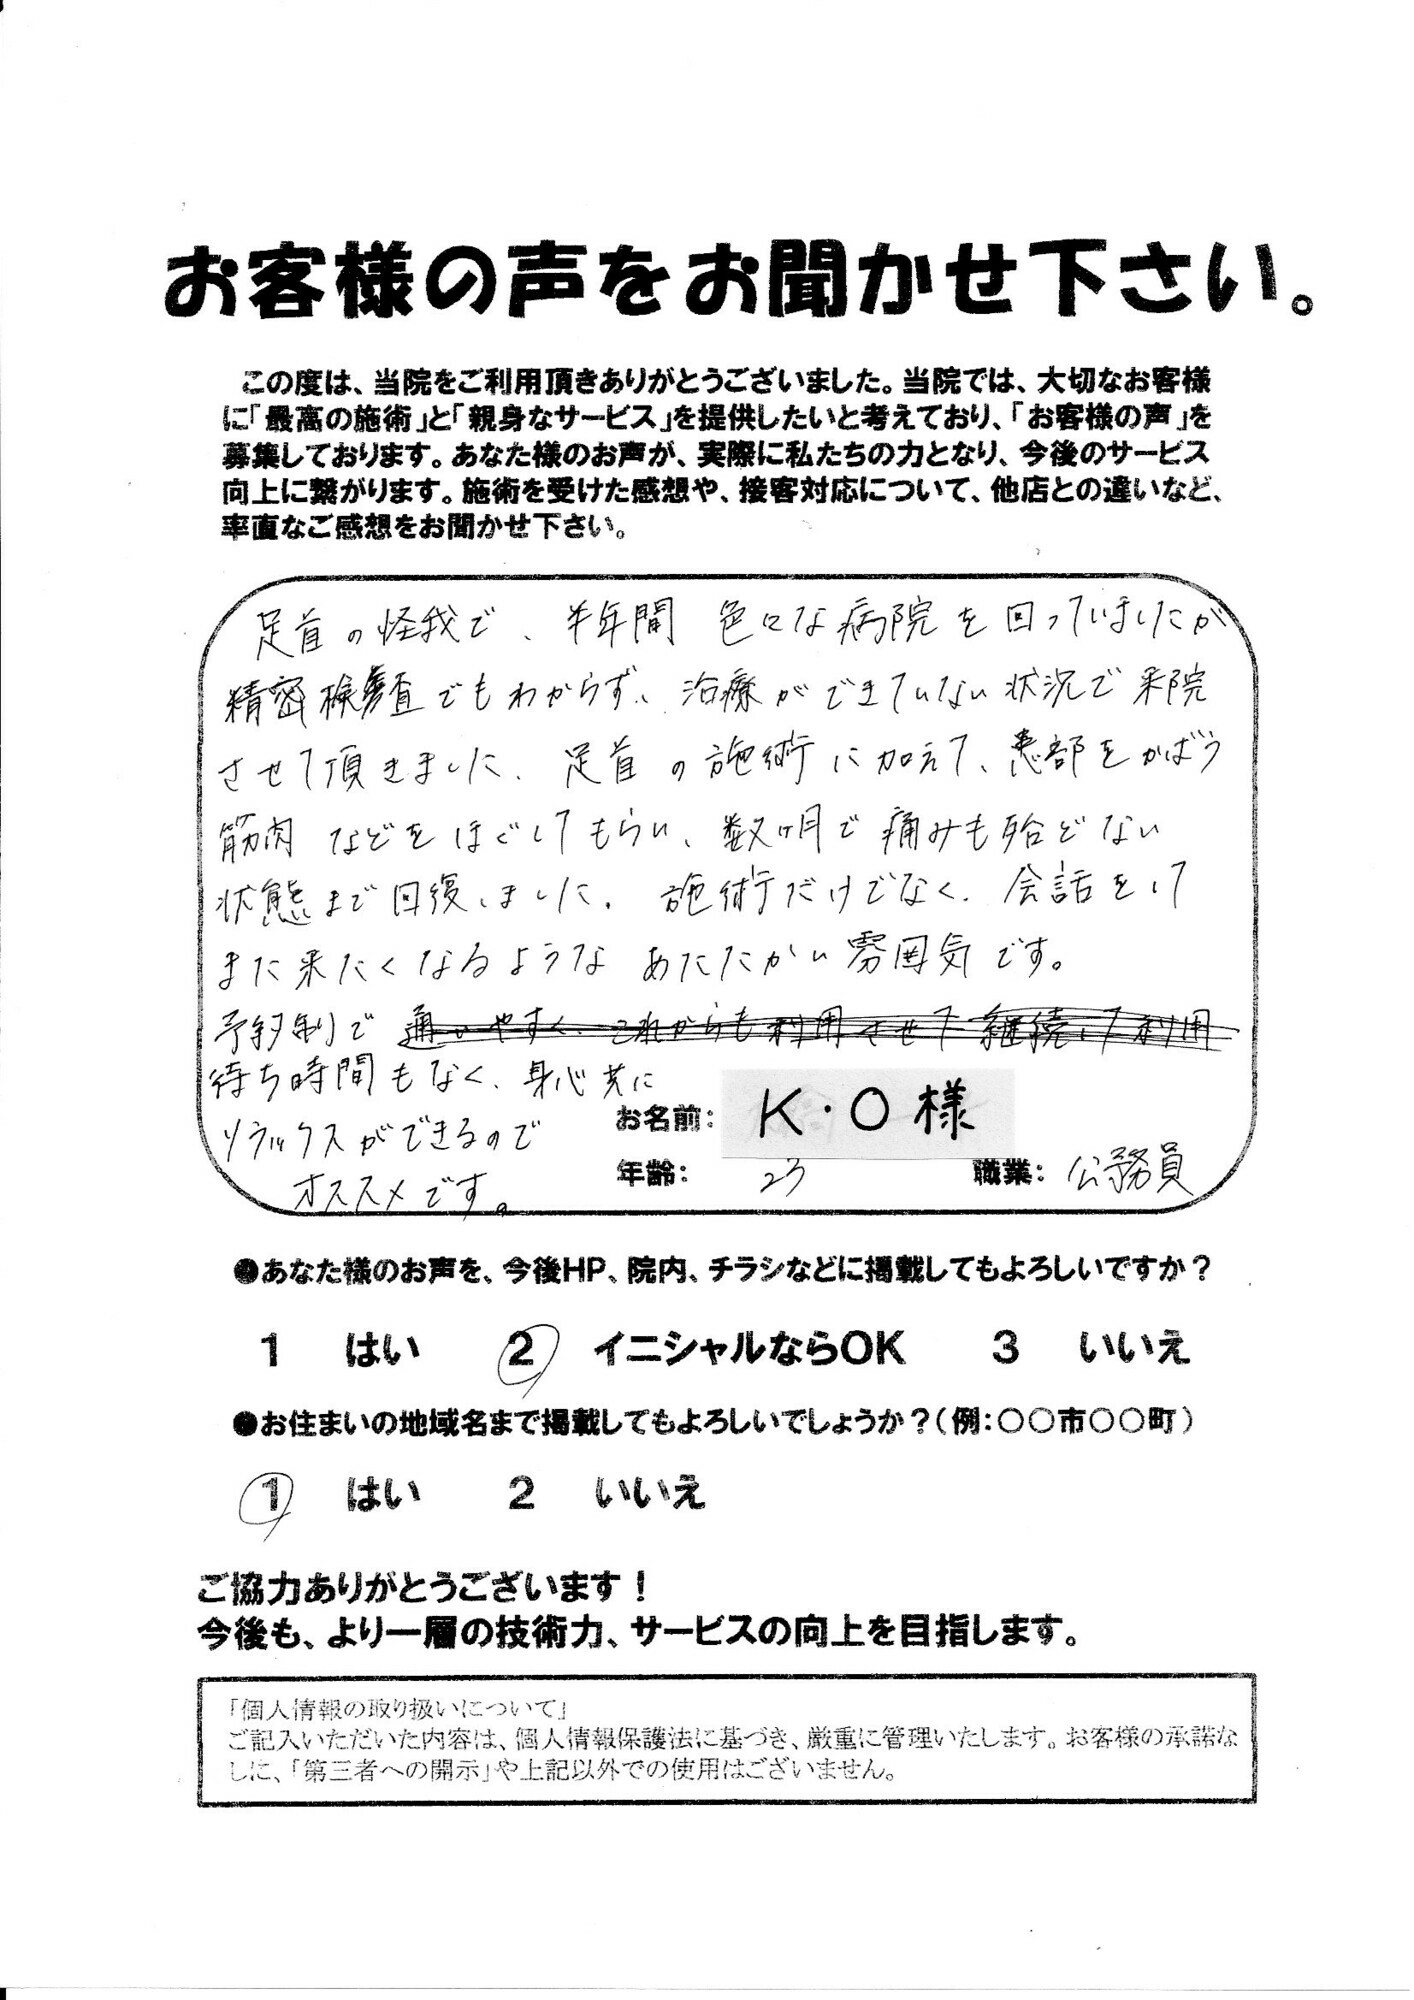 お客様の声をお聞かせ下さい。
この度は、当院をご利用頂きありがとうございました。当院では、大切なお客様
に「最高の施術」と「親身なサービス」を提供したいと考えており、「お客様の声」を
募集しております。あなた様のお声が、実際に私たちの力となり、今後のサービス
向上に繋がります。施術を受けた感想や、接客対応について、他店との違いなど、
率直なご感想をお聞かせ下さい。
足首の怪我で、半年間 色々な病院を回っていましたが
精密検査でもわからず、治療ができていない状況で来院
させて頂きました。足首の施術に加えて、患部をかばう
筋肉などをほぐしてもらい、数ヶ月で痛みも殆どない
状態まで回復しました。施術だけでなく、会話をして
また来たくなるような あたたかい雰囲気です。
予約制で 通いやすく、これからも利用させて 継続して利用
待ち時間もなく、身心共に
リラックスができるので
オススメです。
お名前: K・O様
年齢: 23 職業: 公務員
●あなた様のお声を、今後HP、院内、チラシなどに掲載してもよろしいですか？
1 はい 2 イニシャルならOK 3 いいえ
●お住まいの地域名まで掲載してもよろしいでしょうか？(例:○○市○○町)
1 はい 2 いいえ
ご協力ありがとうございます！
今後も、より一層の技術力、サービスの向上を目指します。
「個人情報の取り扱いについて」
ご記入いただいた内容は、個人情報保護法に基づき、厳重に管理いたします。お客様の承諾な
しに、「第三者への開示」や上記以外での使用はございません。